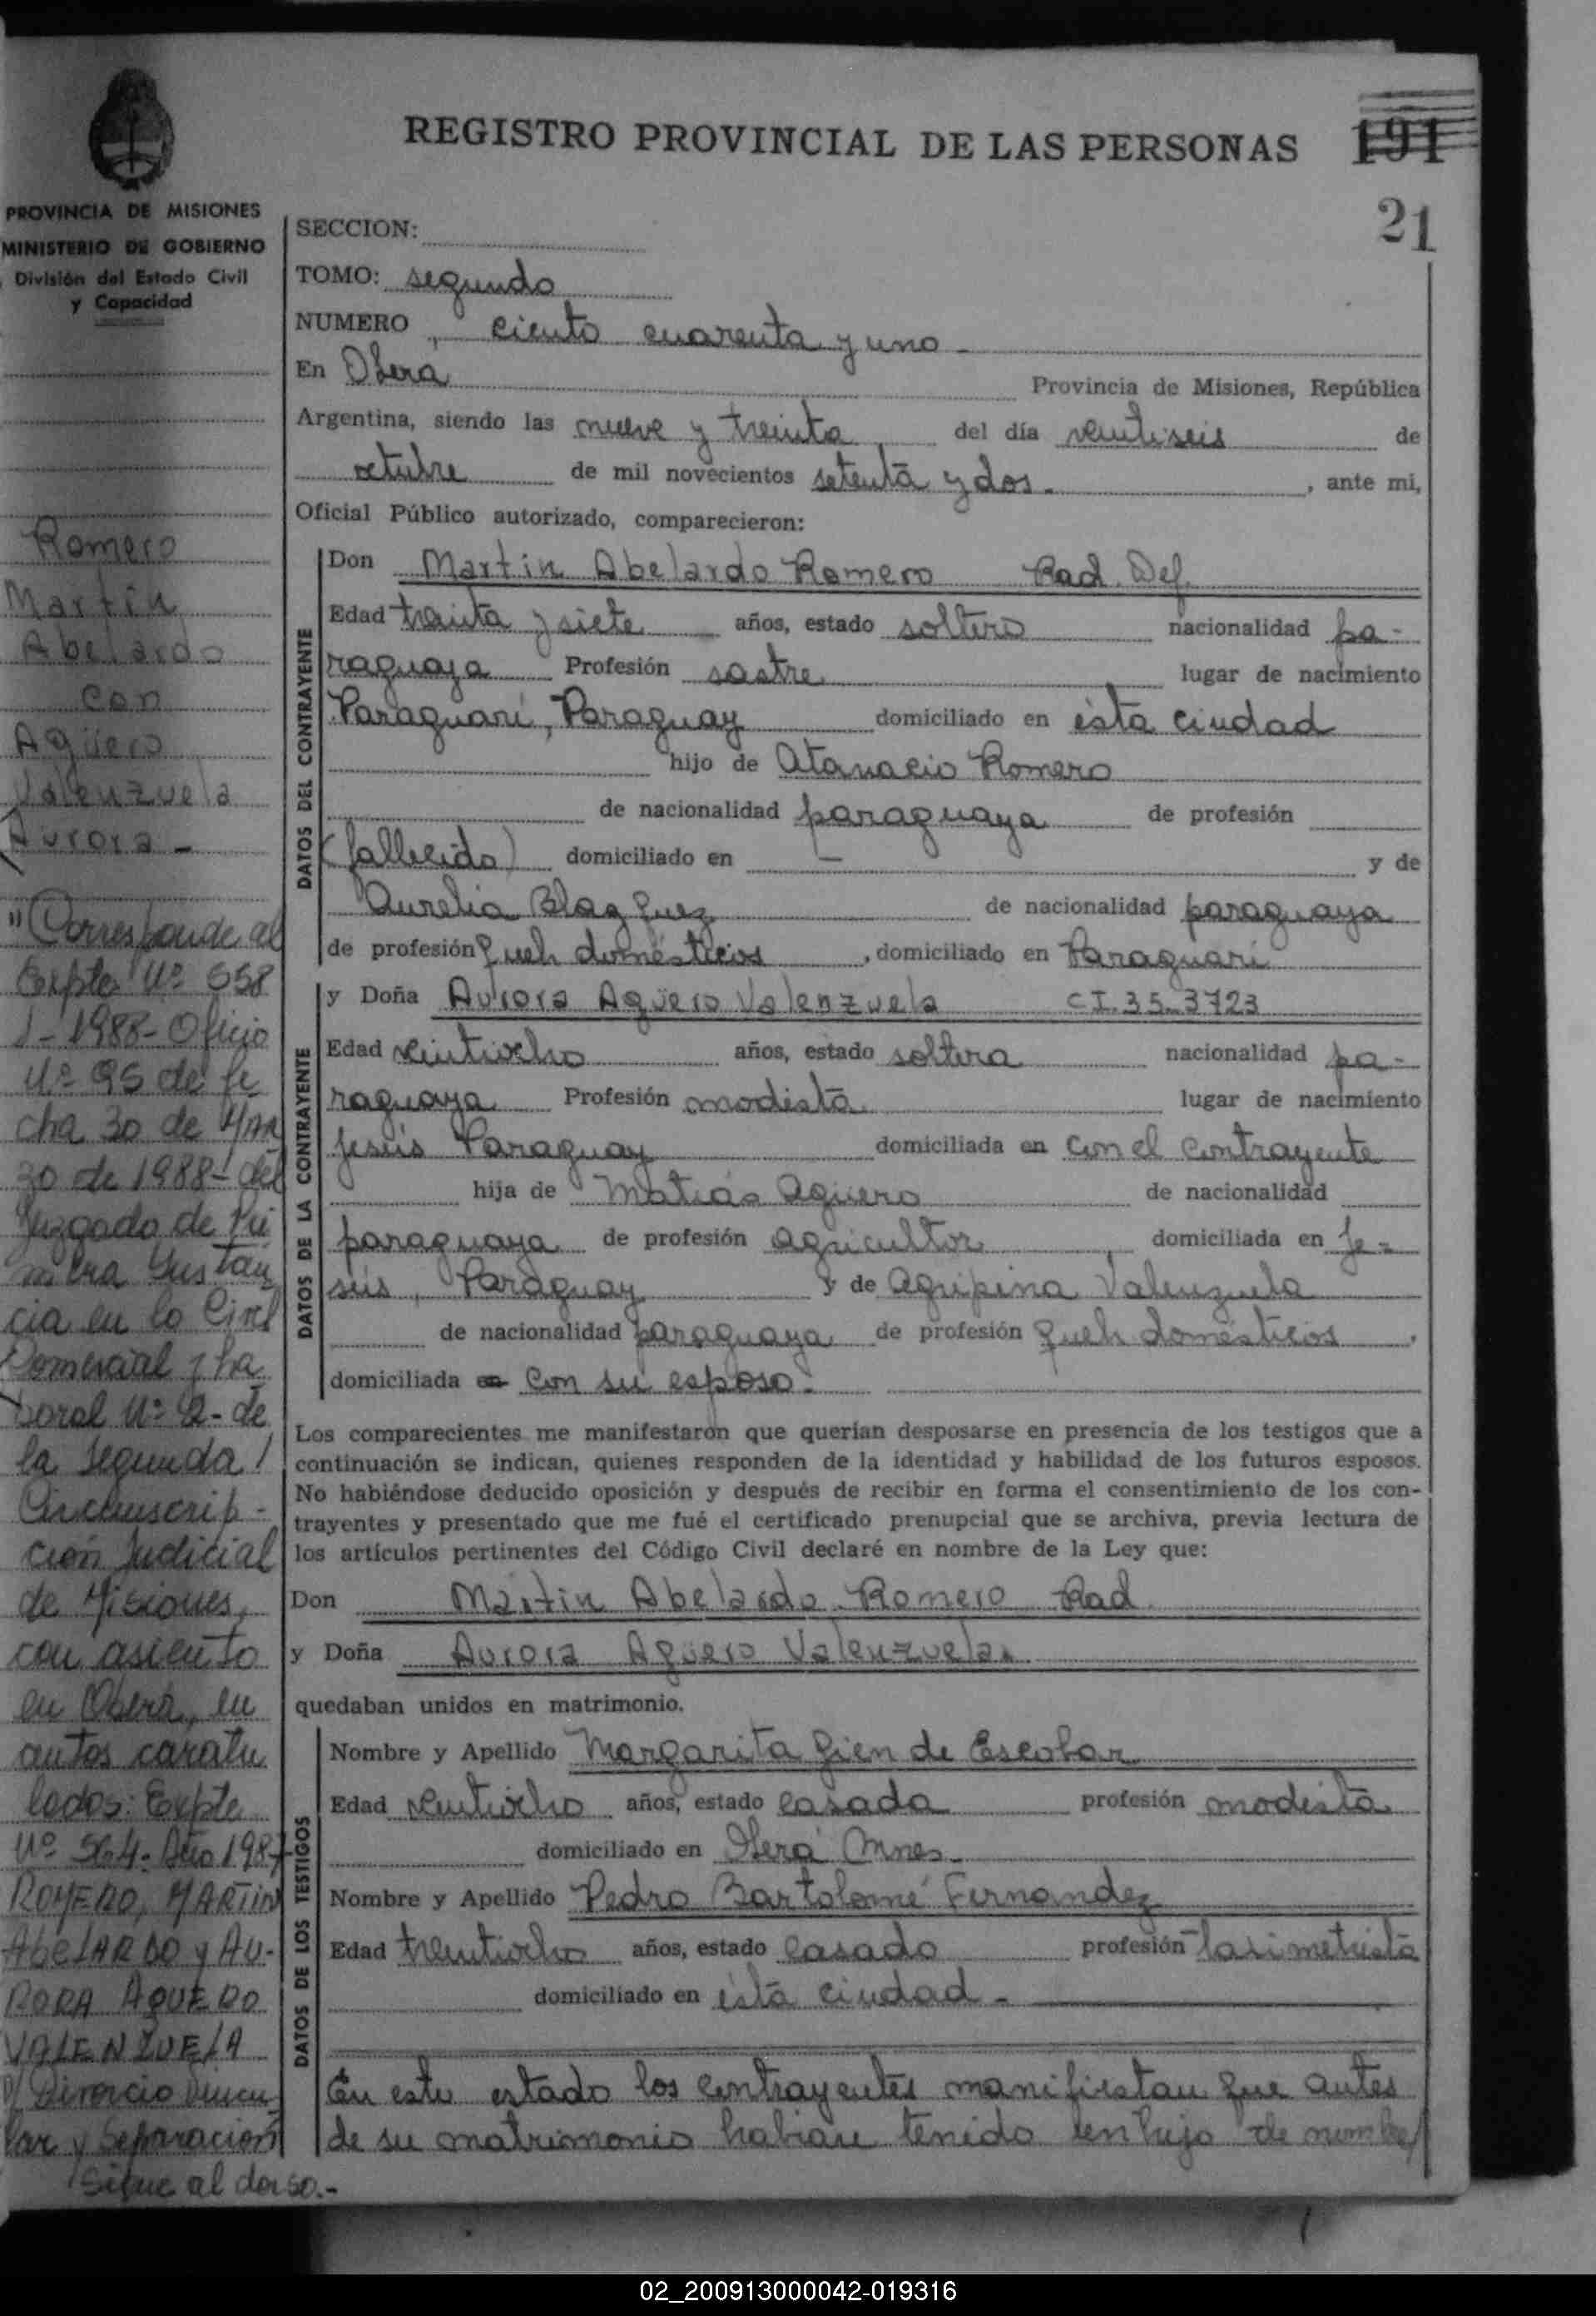 REGISTRO PROVINCIAL DE LAS PERSONAS 191
21
PROVINCIA DE MISIONES
MINISTERIO DE GOBIERNO
División del Estado Civil
y Capacidad
Romero
Martín
Abelardo
con
Agüero
Valenzuela
Aurora -
"Corresponde al
Expte Nº 558
1-1988- Oficio
Nº 95 de fe
cha 30 de MAR
30 de 1988- del
Juzgado de Pri
mera Instan
cia en lo Civil
Comercial y La
boral Nº 2- de
la Segunda
Circunscrip-
ción Judicial
de Misiones,
con asiento
en Oberá, en
autos caratu
lados: Expte
Nº 564- Año 1987
ROMERO, MARTIN
AbELARDO y AU-
RORA AGUERO
VALENZUELA
s/ Divorcio Vincu
lar y Separación
Sigue al dorso.-
SECCION:
TOMO: segundo
NUMERO, ciento cuarenta y uno -
En Oberá Provincia de Misiones, República
Argentina, siendo las nueve y treinta, del día veintiseis de
octubre de mil novecientos setenta y dos. , ante mi,
Oficial Público autorizado, comparecieron:
DATOS DEL CONTRAYENTE
Don Martin Abelardo Romero Rad. Def.
Edad treinta y siete años, estado soltero nacionalidad pa-
raguaya Profesión sastre lugar de nacimiento
Paraguarí, Paraguay domiciliado en ésta ciudad
hijo de Atanacio Romero
de nacionalidad paraguaya de profesión
(fallecido) domiciliado en - y de
Aurelia Blazquez de nacionalidad paraguaya
de profesión queh domésticos , domiciliado en Paraguarí
DATOS DE LA CONTRAYENTE
y Doña Aurora Agüero Valenzuela CI.35.3723
Edad veintiocho años, estado soltera nacionalidad pa-
raguaya Profesión modista lugar de nacimiento
Jesús Paraguay domiciliada en con el contrayente
hija de Matías Agüero de nacionalidad
paraguaya de profesión agricultor domiciliada en Je-
sús, Paraguay y de Agripina Valenzuela
de nacionalidad paraguaya de profesión queh domésticos ,
domiciliada en con su esposo.
Los comparecientes me manifestaron que querían desposarse en presencia de los testigos que a
continuación se indican, quienes responden de la identidad y habilidad de los futuros esposos.
No habiéndose deducido oposición y después de recibir en forma el consentimiento de los con-
trayentes y presentado que me fué el certificado prenupcial que se archiva, previa lectura de
los artículos pertinentes del Código Civil declaré en nombre de la Ley que:
Don Martin Abelardo Romero Rad.
y Doña Aurora Agüero Valenzuela.
quedaban unidos en matrimonio.
DATOS DE LOS TESTIGOS
Nombre y Apellido Margarita Gien de Escobar
Edad veintiocho años, estado casada profesión modista
domiciliado en Oberá Mnes.
Nombre y Apellido Pedro Bartolomé Fernandez
Edad treintiocho años, estado casado profesión taximetrista
domiciliado en ésta ciudad -
En este estado los contrayentes manifiestan que antes
de su matrimonio habian tenido un hijo de nombre
02_200913000042-019316